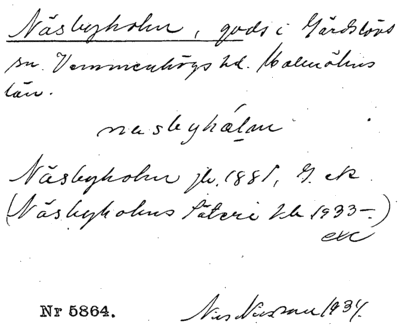 Näsbyholm, gods i Gärdslövs
sn. Vemmenhögs hd. Malmöhus
län.
näsbyhålm
Näsbyholm jb. 1881, G. ek
(Näsbyholms Säteri 1933-.)
Nr 5864. Nils Nilsson 1934.